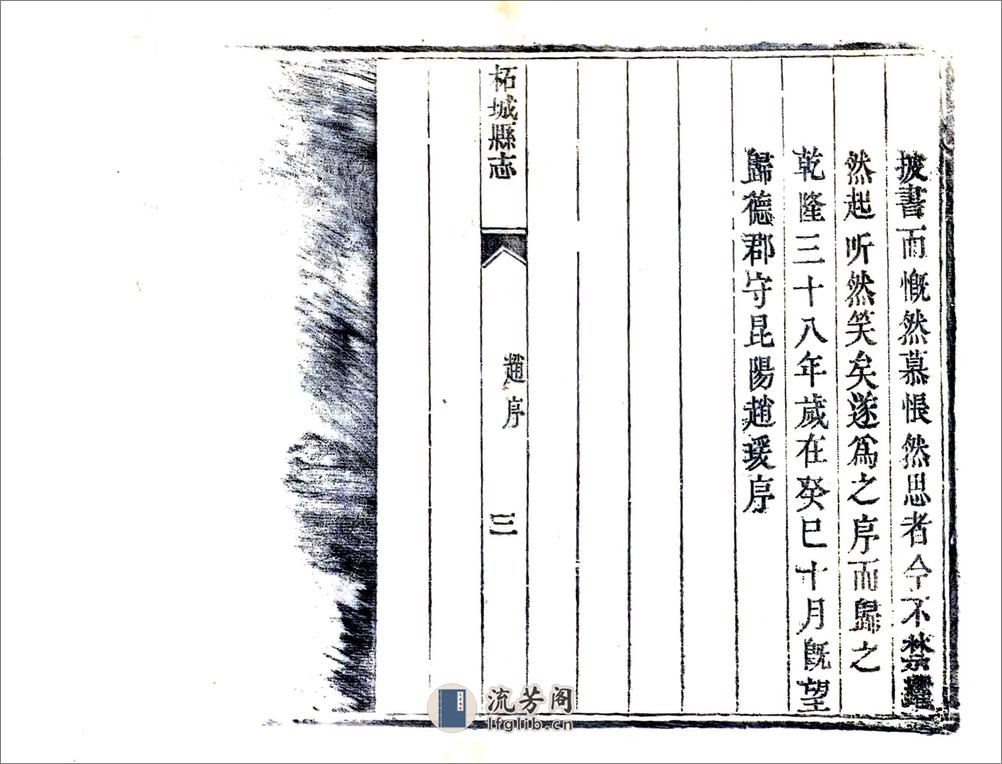 披書而慨然慕悵然思者今不禁躍
然起听然笑矣遂為之序而歸之
乾隆三十八年歲在癸巳十月既望
歸德郡守昆陽趙瑗序
柘城縣志
趙序
三
流芳阁
lfglib.cn